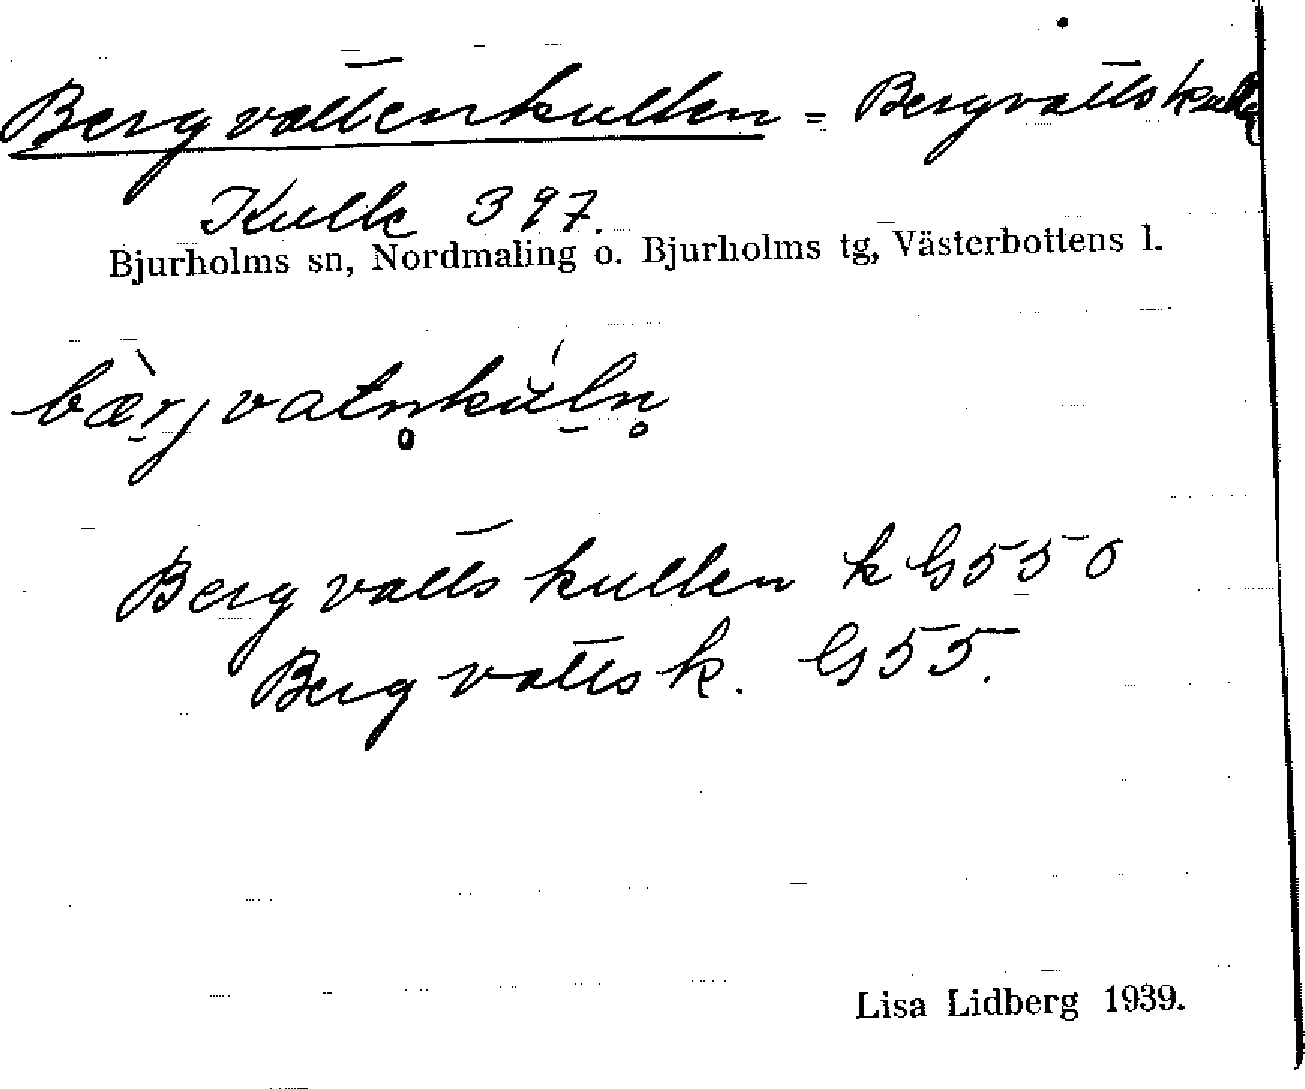 Bergvattenkullen = Bergvattskulle
Kulle 397.
Bjurholms sn, Nordmaling o. Bjurholms tg, Västerbottens l.
bæ̀rjvatn̥kúln̥
Bergvattskullen k G550
Bergvattsk. G55.
Lisa Lidberg 1939.